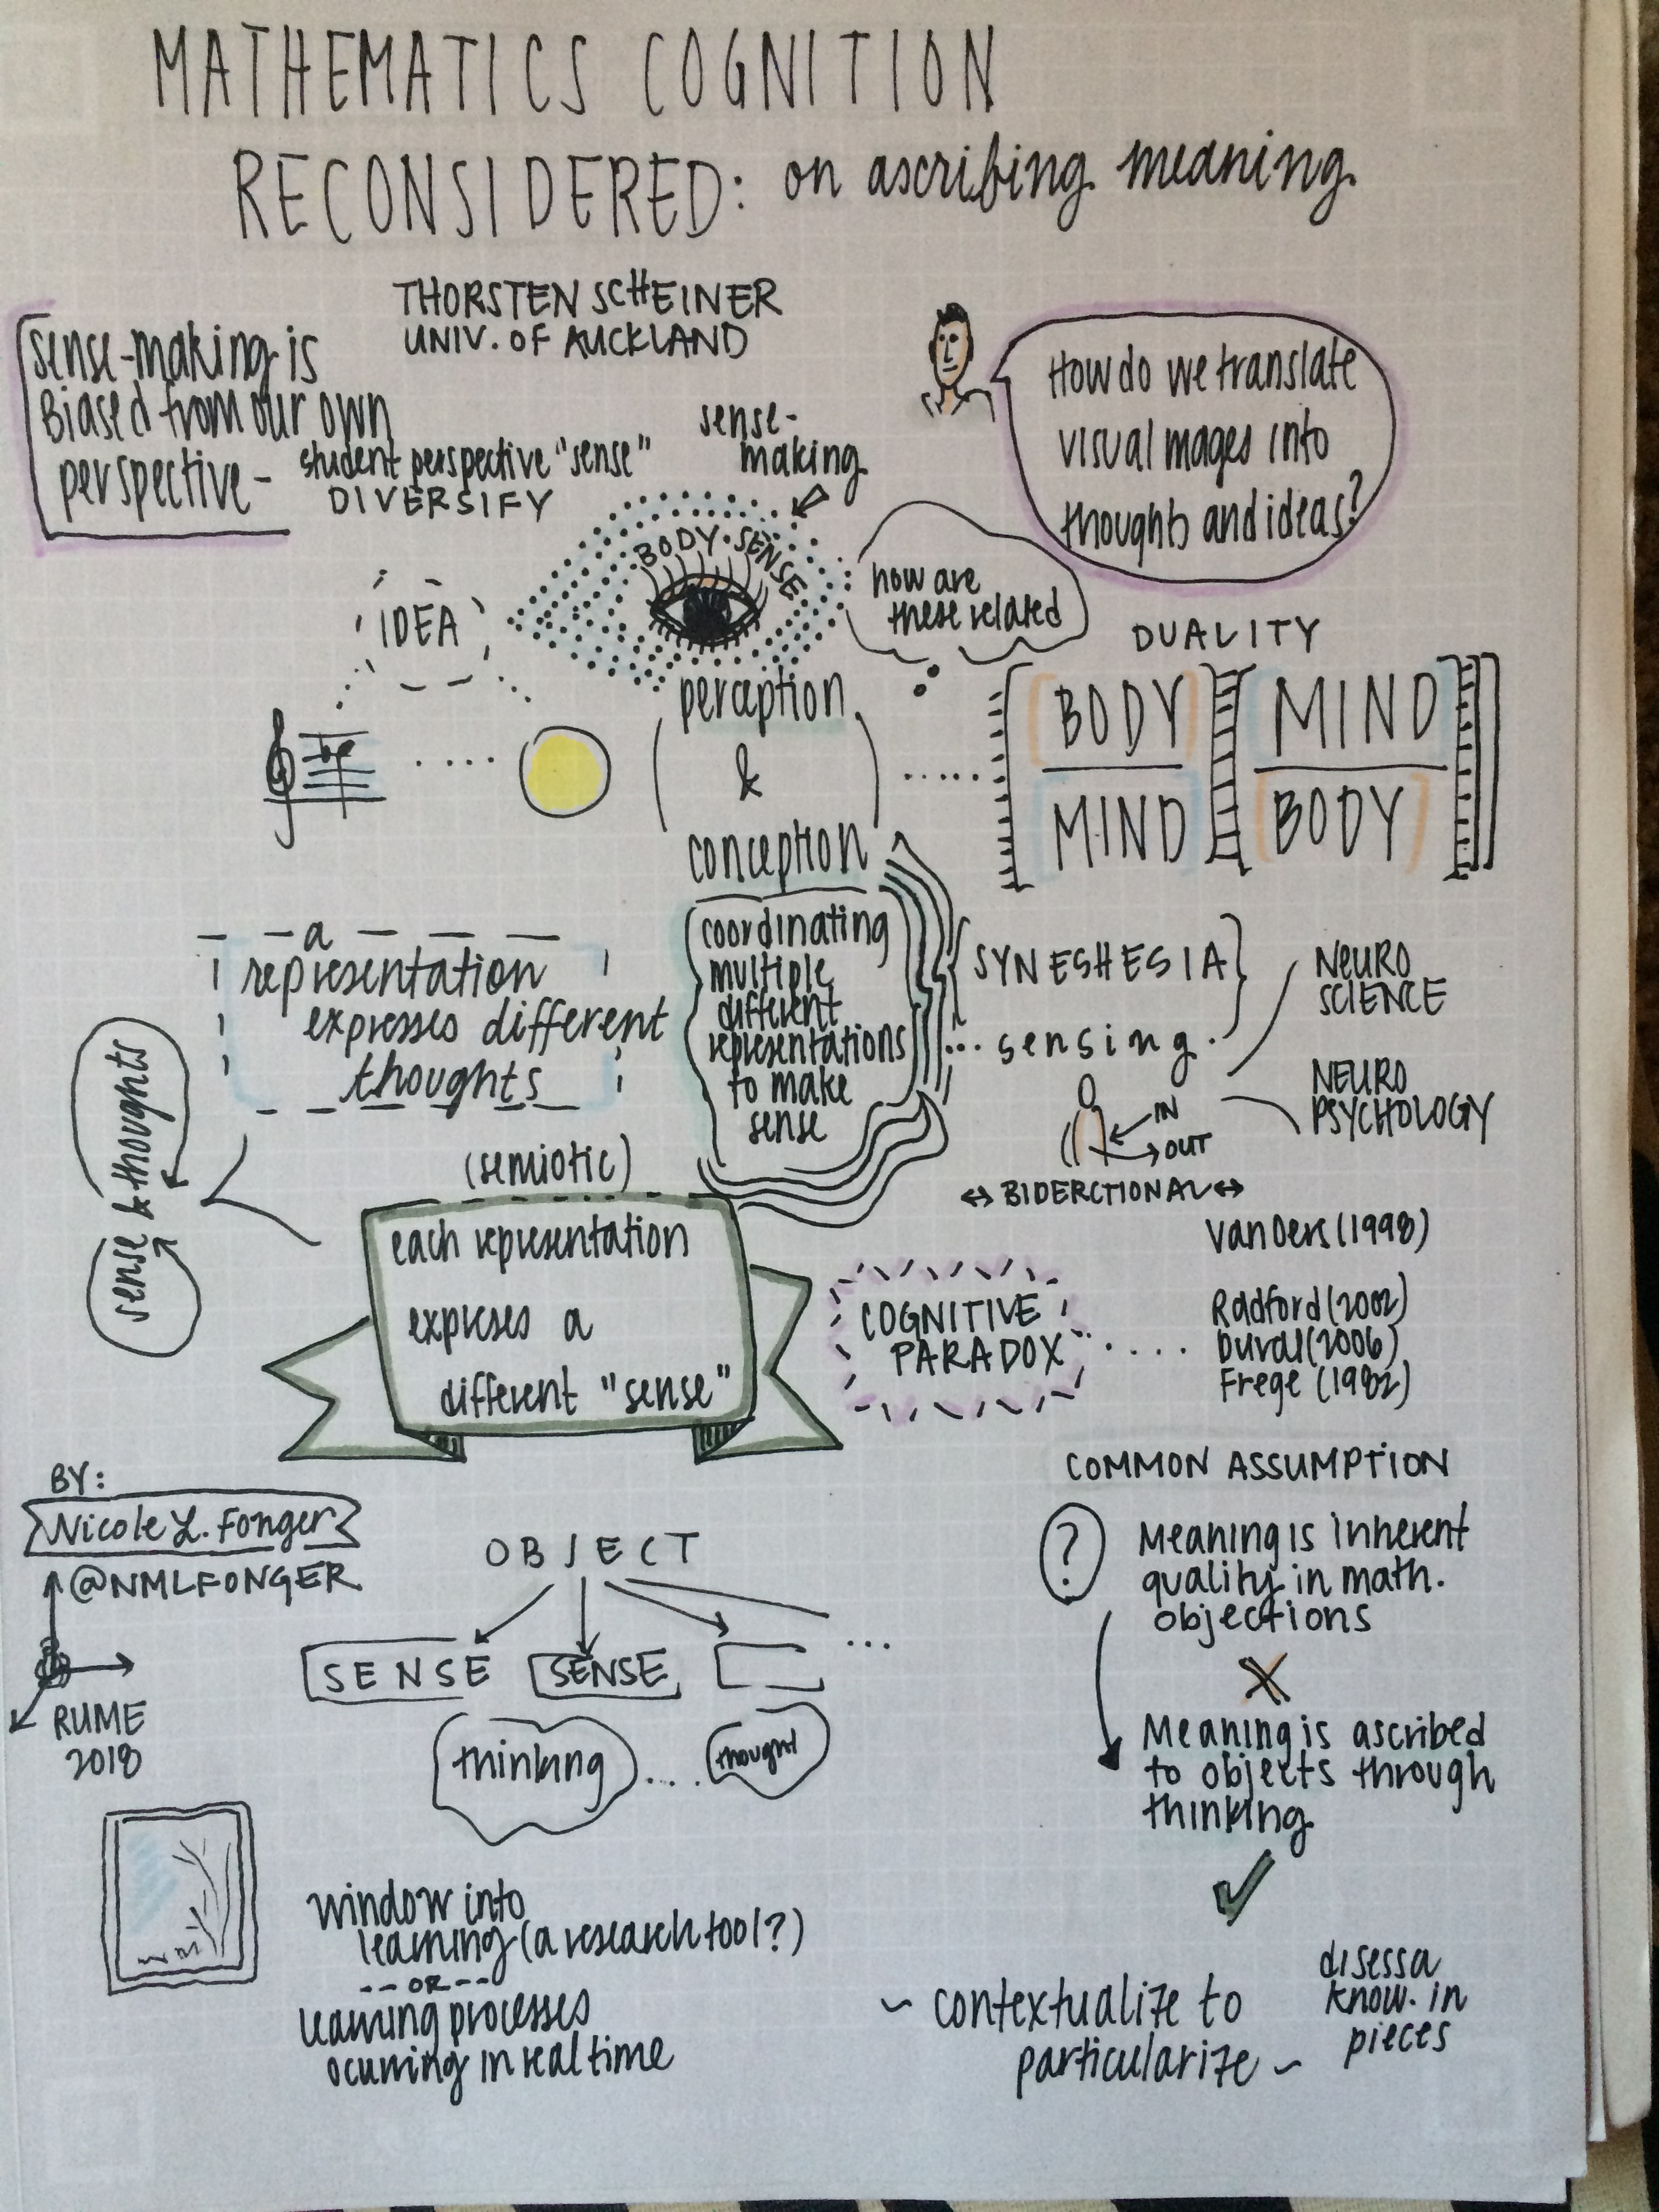 MATHEMATICS COGNITION
RECONSIDERED: on ascribing meaning
THORSTEN SCHEINER
UNIV. OF AUCKLAND
sense-making is
Biased from our own
perspective -
student perspective "sense"
DIVERSIFY
sense-
making
How do we translate
visual mages into
thoughts and ideas?
BODY · SENSE
how are
these related
IDEA
perception
&
conception
DUALITY
BODY
MIND
MIND
BODY
a
representation
expresses different
thoughts
coordinating
multiple
different
representations
to make
sense
SYNESHESIA
sensing
NEURO
SCIENCE
NEURO
PSYCHOLOGY
IN
OUT
↔ BIDERCTIONAL ↔
sense & thoughts
(semiotic)
each representation
expresses a
different "sense"
COGNITIVE
PARADOX
Van Oers (1998)
Radford (2002)
Duval (2006)
Frege (1982)
BY:
Nicole L. Fonger
@NMLFONGER
RUME
2018
OBJECT
SENSE
SENSE
...
thinking
....
thought
COMMON ASSUMPTION
?
Meaning is inherent
quality in math.
objections
X
Meaning is ascribed
to objects through
thinking
window into
learning (a research tool?)
-- OR --
learning processes
ocurring in real time
~ contextualize to
particularize ~
disessa
know. in
pieces